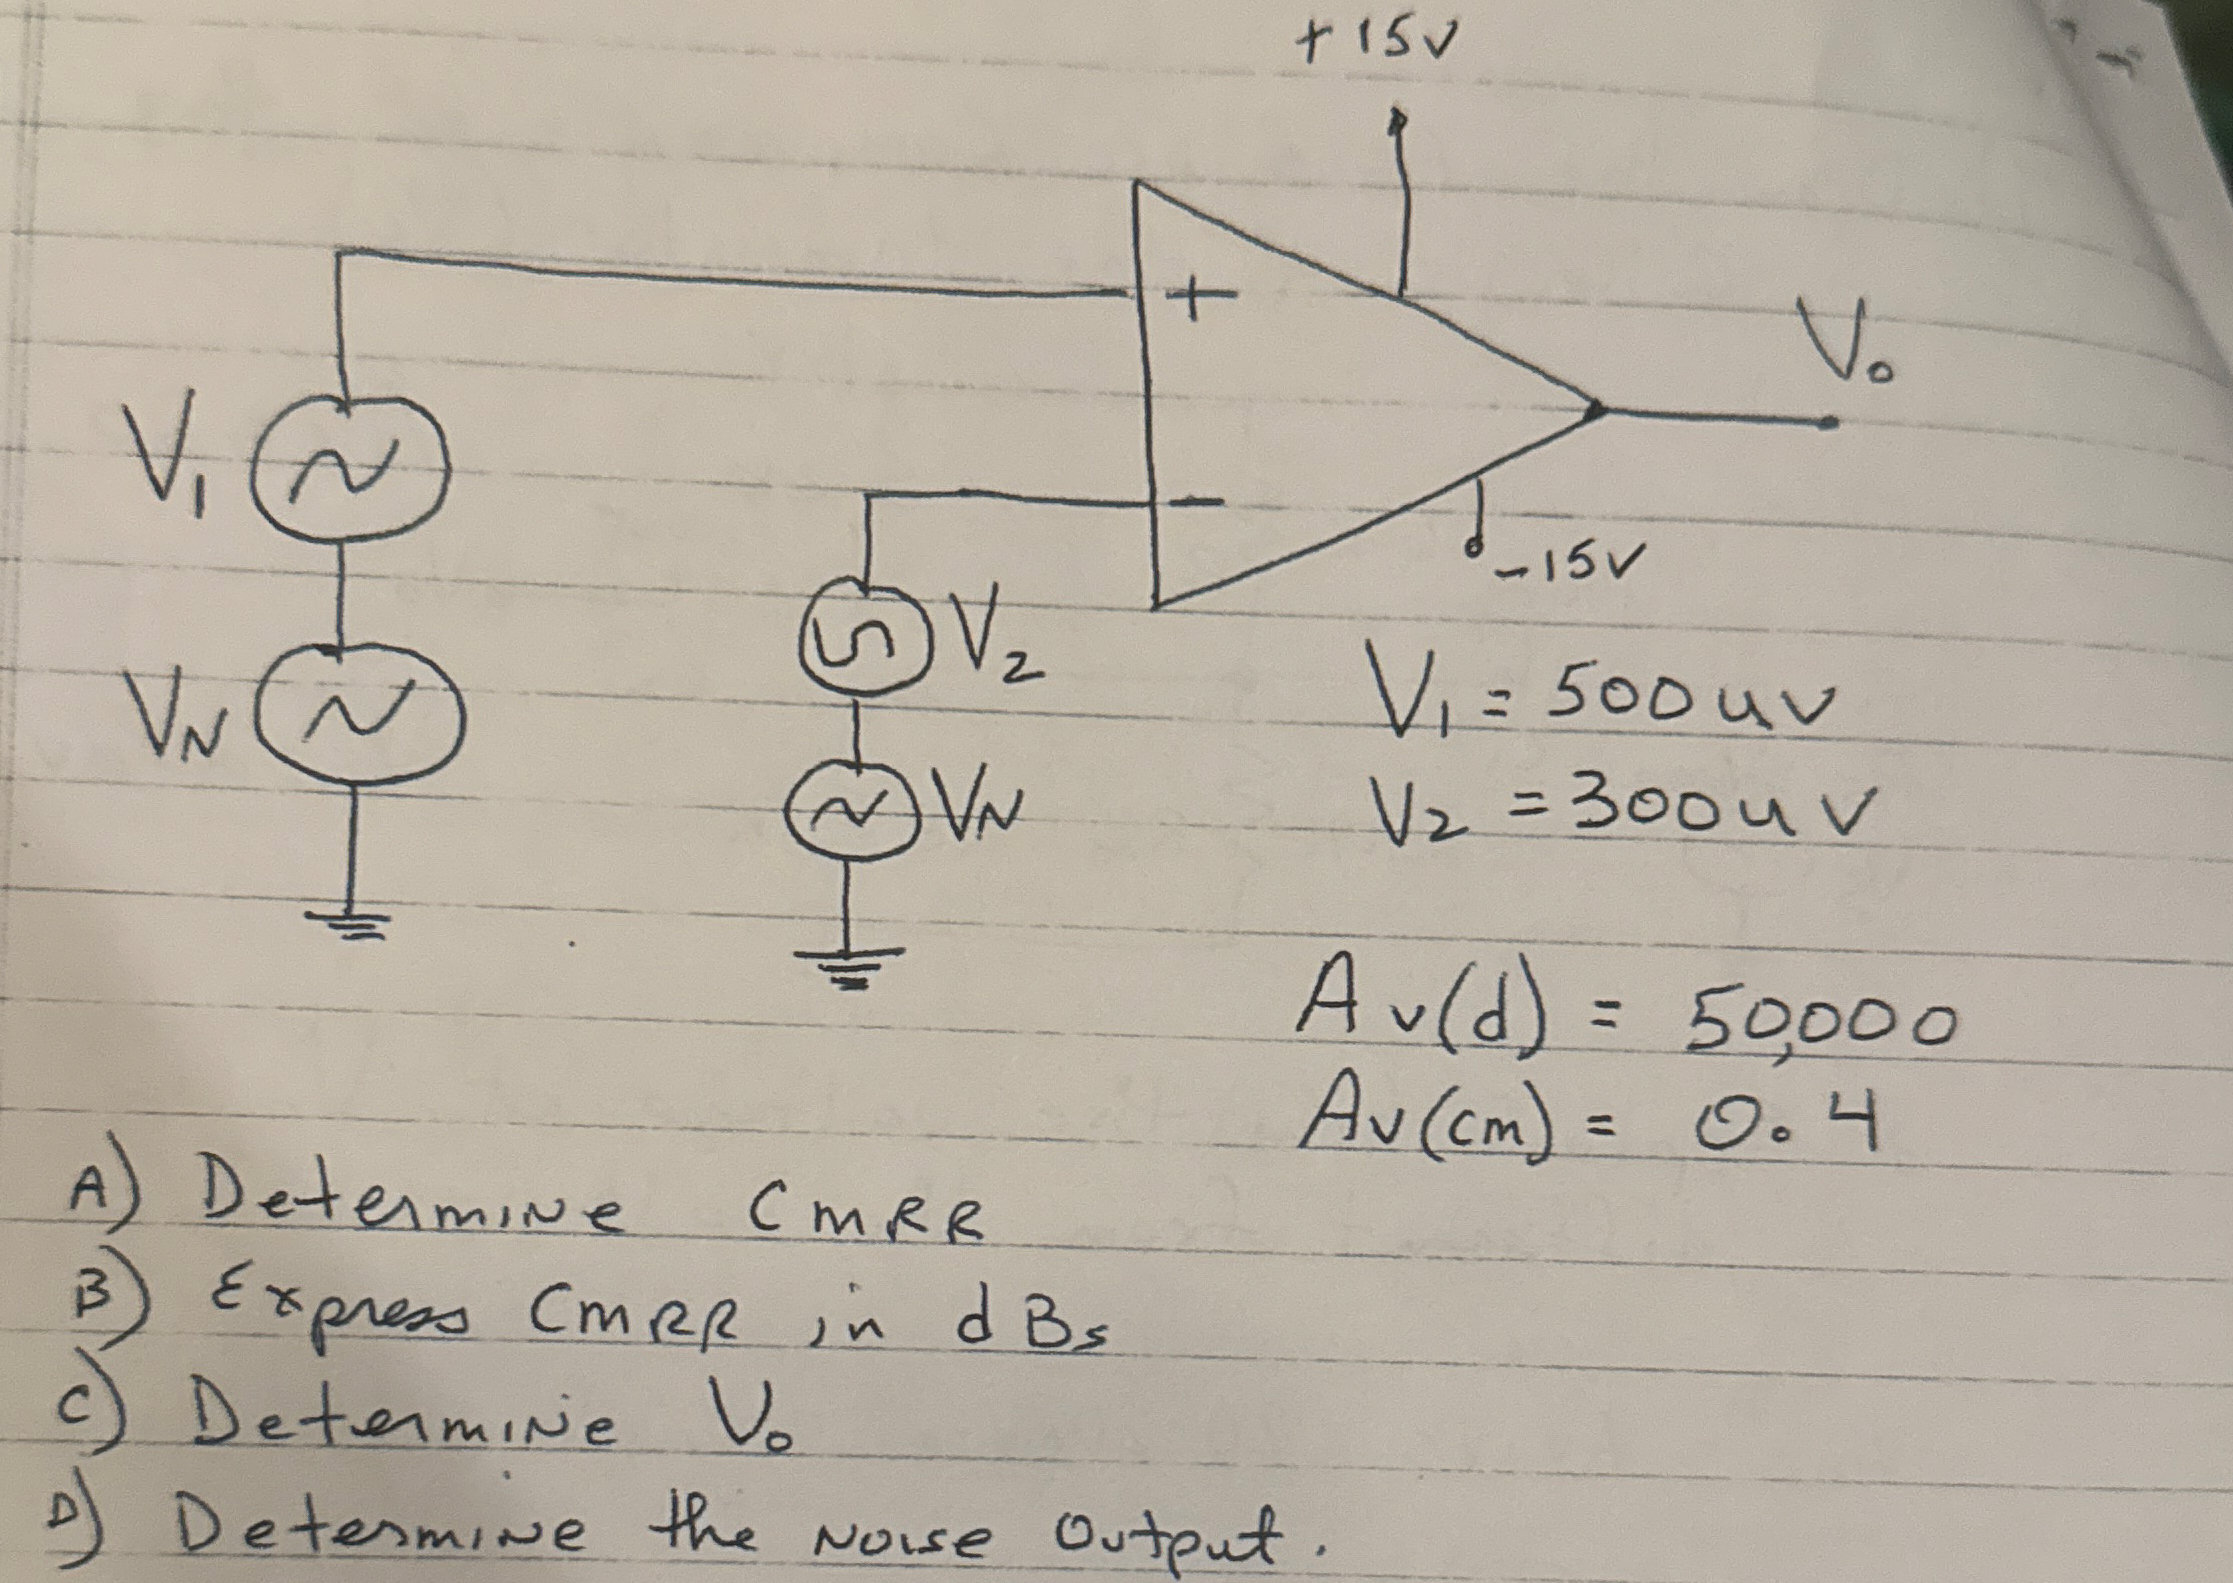 +15V
V₀
V₁
-15V
V₂
V₁ = 500uv
VN
VN
V₂ = 300uV
Av(d) = 50,000
Av(cm) = 0.4
A) Determine CMRR
B) Express CMRR in dBs
C) Determine V₀
D) Determine the Noise Output.